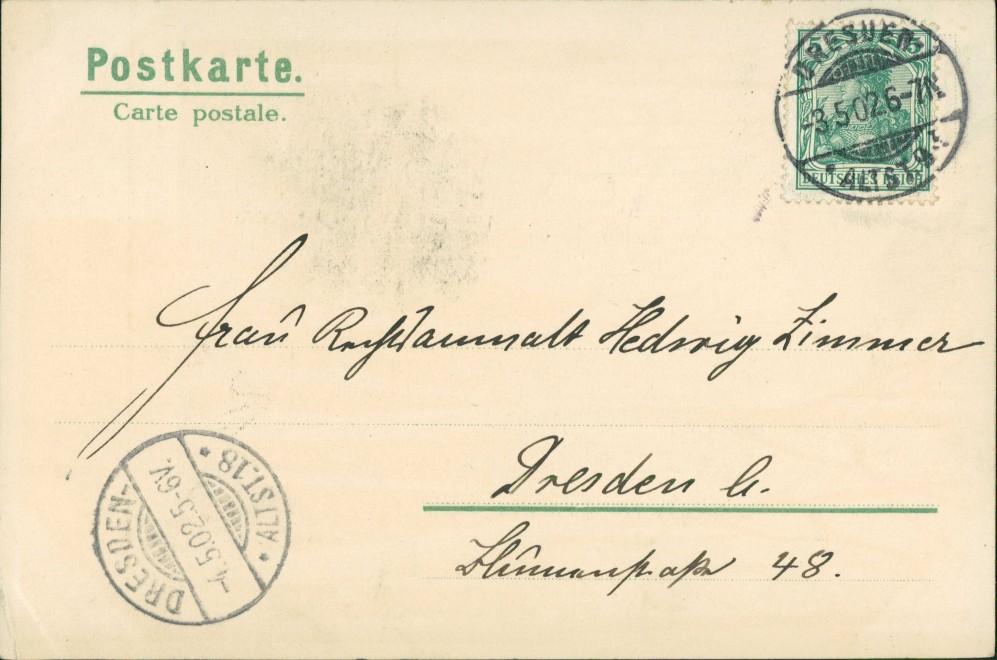 Postkarte.
Carte postale.
5 5
DEUTSCHES REICH
DRESDEN
-3.5.02.6-7N.
* ALTST.
Frau Rechtsanwalt Hedwig Zimmer
Dresden A.
Blumenstraße 48.
DRESDEN-
-4.5.02.5-6V.
* ALTST.18 *